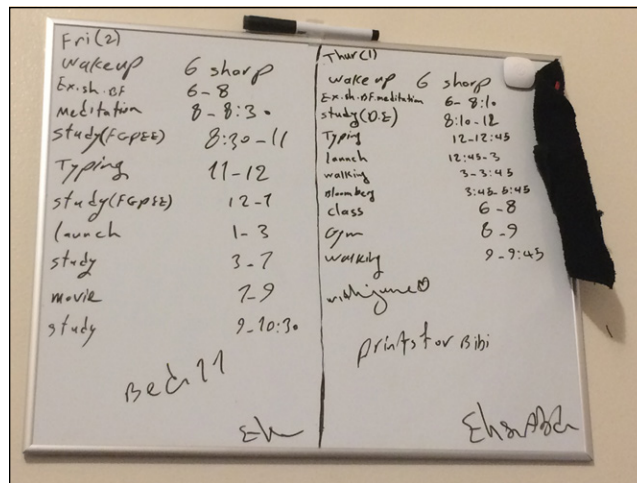 Fri(2)
wakeup 6 sharp
Ex.sh.BF 6-8
meditation 8-8:30
study(FGPEE) 8:30-11
Typing 11-12
study(FGPEE) 12-1
launch 1-3
study 3-7
movie 7-9
study 9-10:30
Bed 11
Thur(1)
wake up 6 sharp
Ex.sh.BF.meditation 6-8:10
study(D.E) 8:10-12
Typing 12-12:45
launch 12:45-3
walking 3-3:45
Bloomberg 3:45-5:45
class 6-8
Gym 8-9
walking 9-9:45
prints for Bibi